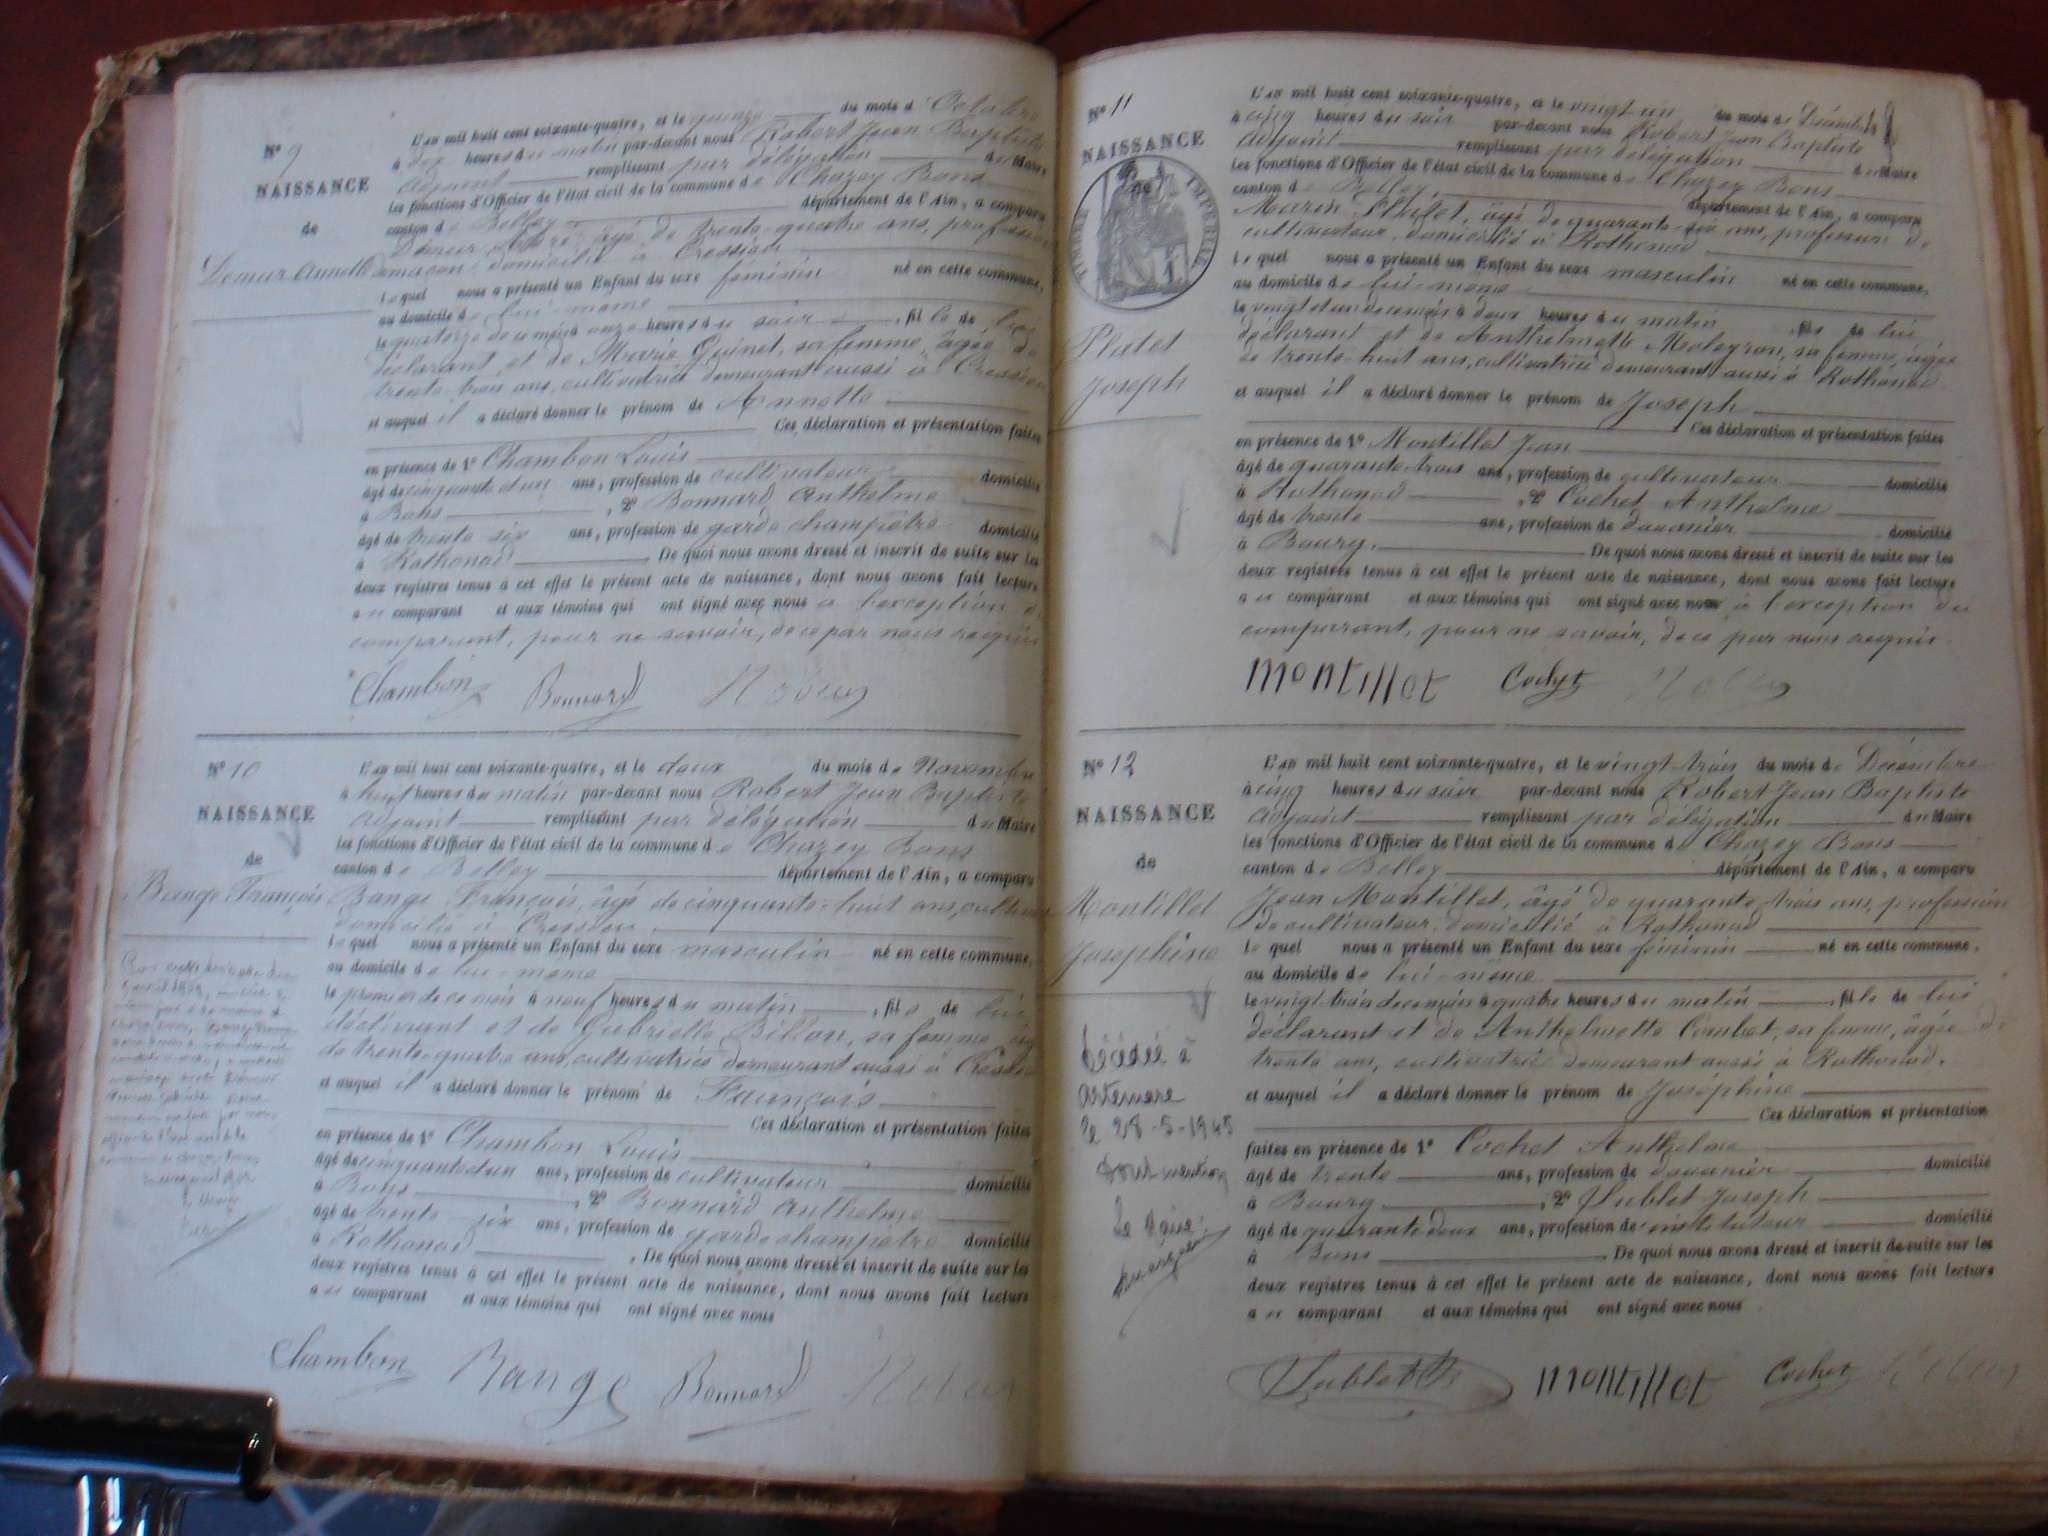 N° 9
NAISSANCE
de
Demur Annette
L'an mil huit cent soixante-quatre, et le quinze du mois d'Octobre
à dix heures du matin par-devant nous Robert Jean Baptiste
adjoint remplissant par délégation du Maire
les fonctions d'Officier de l'état civil de la commune de Chazey Bons
canton de Belley département de l'Ain, a comparu
âgé de trente-quatre ans, profession
de maçon, domicilié à Cressieu
lequel nous a présenté un Enfant du sexe féminin né en cette commune,
au domicile de lui-même
le quatorze de ce mois à onze heures du soir, fille de lui
déclarant et de Marie Guinet, sa femme, âgée de
trente trois ans, cultivatrice demeurant aussi à Cressieu
et auquel il a déclaré donner le prénom de Annette
Ces déclaration et présentation faites
en présence de 1° Chambon Louis
âgé de cinquante et un ans, profession de cultivateur domicilié
à Bons, 2° Bonnard Anthelme
âgé de trente six ans, profession de garde champêtre domicilié
à Rothonod De quoi nous avons dressé et inscrit de suite sur les
deux registres tenus à cet effet le présent acte de naissance, dont nous avons fait lecture
au comparant et aux témoins qui ont signé avec nous à l'exception du
comparant, pour ne savoir, de ce par nous requis
Chambon Bonnard
N° 10
NAISSANCE
de
Bange François
L'an mil huit cent soixante-quatre, et le deux du mois de Novembre
à huit heures du matin par-devant nous Robert Jean Baptiste
adjoint remplissant par délégation du Maire
les fonctions d'Officier de l'état civil de la commune de Chazey Bons
canton de Belley département de l'Ain, a comparu
Bange François, âgé de cinquante-huit ans,
domicilié à Cressieu
lequel nous a présenté un Enfant du sexe masculin né en cette commune,
au domicile de lui-même
le premier de ce mois à neuf heures du matin, fils de lui
déclarant et de Gabrielle Billon, sa femme
de trente-quatre ans, cultivatrice demeurant aussi à Cressieu
et auquel il a déclaré donner le prénom de François
Ces déclaration et présentation faites
en présence de 1° Chambon Louis
âgé de cinquante et un ans, profession de cultivateur domicilié
à Bons, 2° Bonnard Anthelme
âgé de trente-six ans, profession de garde champêtre domicilié
à Rothonod, De quoi nous avons dressé et inscrit de suite sur les
deux registres tenus à cet effet le présent acte de naissance, dont nous avons fait lecture
au comparant et aux témoins qui ont signé avec nous
Chambon Bange Bonnard
N° 11
NAISSANCE
de
TIMBRE IMPERIAL
Platet
Joseph
L'an mil huit cent soixante-quatre, et le vingt un du mois de Décembre
à cinq heures du soir par-devant nous Robert Jean Baptiste
adjoint remplissant par délégation du Maire
les fonctions d'Officier de l'état civil de la commune de Chazey Bons
canton de Belley département de l'Ain, a comparu
Marin Platet, âgé de quarante-six ans, profession de
cultivateur, domicilié à Rothonod
lequel nous a présenté un Enfant du sexe masculin né en cette commune,
au domicile de lui-même
le vingt et un de ce mois à deux heures du matin, fils de lui
déclarant et de Anthelmette Moleyron, sa femme, âgée
de trente-huit ans, cultivatrice demeurant aussi à Rothonod
et auquel il a déclaré donner le prénom de Joseph
Ces déclaration et présentation faites
en présence de 1° Montillet Jean
âgé de quarante trois ans, profession de cultivateur domicilié
à Rothonod, 2° Cochet Anthelme
âgé de trente ans, profession de douanier domicilié
à Bourg. De quoi nous avons dressé et inscrit de suite sur les
deux registres tenus à cet effet le présent acte de naissance, dont nous avons fait lecture
au comparant et aux témoins qui ont signé avec nous à l'exception du
comparant, pour ne savoir, de ce par nous requis.
Montillet Cochet
N° 12
NAISSANCE
de
Montillet
Joséphine
décédée à
Artemare
le 28-5-1945
dont mention
Le Maire
L'an mil huit cent soixante-quatre, et le vingt-trois du mois de Décembre
à cinq heures du soir par-devant nous Robert Jean Baptiste
adjoint remplissant par délégation du Maire
les fonctions d'Officier de l'état civil de la commune de Chazey Bons
canton de Belley département de l'Ain, a comparu
Jean Montillet, âgé de quarante trois ans, profession
de cultivateur, domicilié à Rothonod
lequel nous a présenté un Enfant du sexe féminin né en cette commune,
au domicile de lui-même
le vingt-trois de ce mois à quatre heures du matin, fille de lui
déclarant et de Anthelmette Combet, sa femme, âgée de
trente ans, cultivatrice demeurant aussi à Rothonod.
et auquel il a déclaré donner le prénom de Joséphine
Ces déclaration et présentation
faites en présence de 1° Cochet Anthelme
âgé de trente ans, profession de douanier domicilié
à Bourg, 2° Sublet Joseph
âgé de quarante deux ans, profession de instituteur domicilié
à Bons De quoi nous avons dressé et inscrit de suite sur les
deux registres tenus à cet effet le présent acte de naissance, dont nous avons fait lecture
au comparant et aux témoins qui ont signé avec nous
Sublet Montillet Cochet